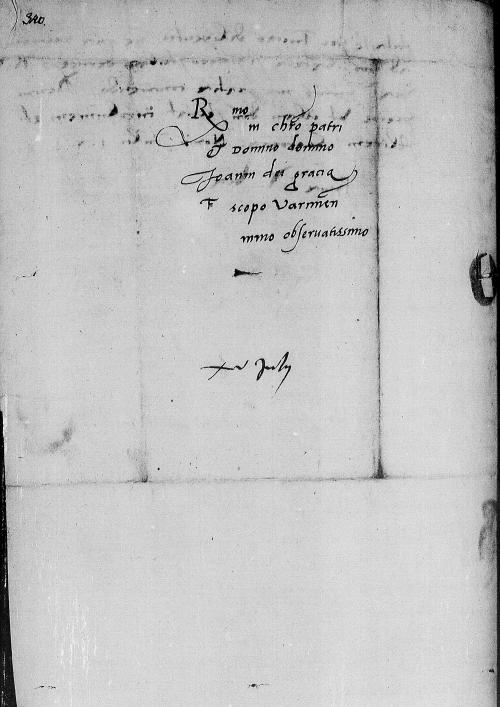 320.
R mo
in chro patri
et Domino domino
Joanni dei gracia
Ep scopo Varmien
mino observatissimo
xv July